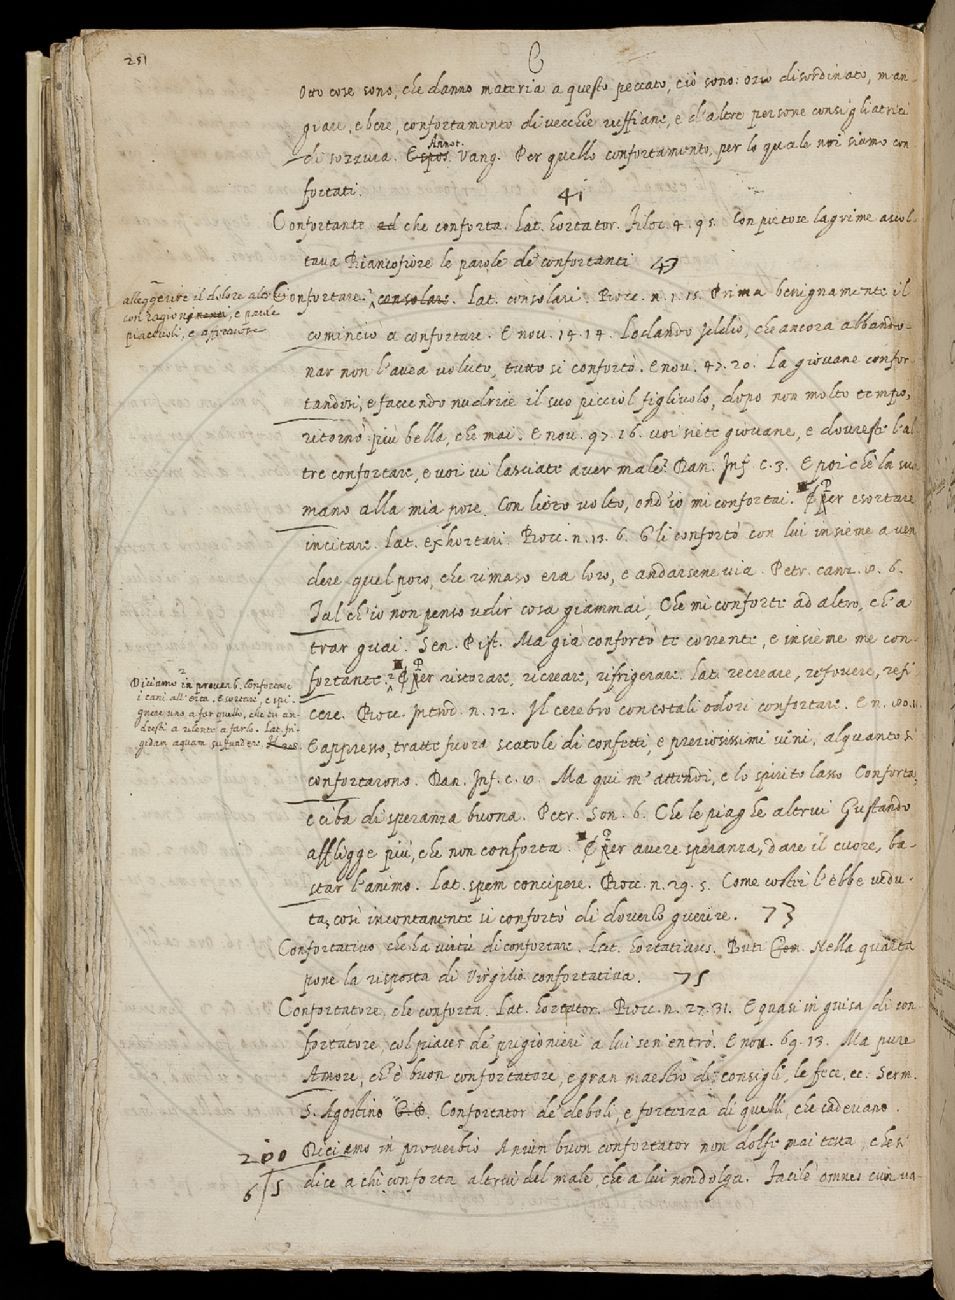 251
C
Otto cose sono, che danno materia a questo peccato, ciò sono: ozio disordinato, man-
giare, e bere, confortamento di vecchie ruffiane, e d'altre persone consigliatrici
di sozzura. Espos. Annot. Vang. Per quello confortamento, per lo quale noi siamo con
fortati.
41
Confortante ad che conforta. Lat. hortator. Filoc. 4. 95. Con pietose lagrime ascol-
tava Biancofiore le parole de' confortanti
43
alleggerire il dolore altrui
con ragionamenti, e parole
piacevoli, e affezione
Confortare. consolare. Lat. consolari. Bocc. n. 1. 15. Prima benignamente il
cominciò a confortare. E nov. 14. 14. Lodando Iddio, che ancora abbando-
nar non l'avea voluto, tutto si confortò. E nov. 47. 20. La giovane confor-
tandosi, e faccendo nudrire il suo picciol figliuolo, dopo non molto tempo,
ritornò più bella, che mai. E nov. 97. 16. voi siete giovane, e dovreste l'al
tre confortare, e voi vi lasciate aver male. Dan. Inf. c. 3. E poi che la sua
mano alla mia pose, Con lieto volto, ond'io mi confortai. ¶ Per esortare
incitare. Lat. exhortari. Bocc. n. 13. 6. Gli confortò con lui insieme a ven
dere quel poco, che rimaso era loro, e andarsene via. Petr. canz. 8. 6.
Tal ch'io non penso udir cosa giammai, Che mi conforte ad altro, ch'a
trar guai. Sen. Pist. Ma già conforto te corrente, e insieme me con-
Diciamo in proverb. Confortare
i cani all'erta. Esortare, e spi-
gnere uno a far quello, che tu an-
dresti a rilento a farlo. Lat. fri-
gidam aquam suffundere.
fortante. ¶ Per ristorare, ricreare, rifrigerare. Lat. recreare, refovere, refi
cere. Bocc. Introd. n. 12. Il cerebro con cotali odori confortare. E n.
E appresso, tratte fuora scatole di confetti, e preziosissimi vini, alquanto si
confortarono. Dan. Inf. c. 8. Ma qui m'attendi, e lo spirito lasso Conforta,
e ciba di speranza buona. Petr. Son. 6. Che le piaghe altrui Gustando
affligge più, che non conforta. ¶ Per avere speranza, dare il cuore, ba-
star l'animo. Lat. spem concipere. Bocc. n. 29. 5. Come costei l'ebbe vedu-
ta, così incontanente si confortò di doverlo guerire.
73
Confortativo che ha virtù di confortare. Lat. hortativus. Buti Nella quarta
pone la risposta di Virgilio confortativa.
75
Confortatore, che conforta. Lat. hortator. Bocc. n. 27. 31. E quasi in guisa di con
fortatore, col piacer de' prigionieri a lui sen'entrò. E nov. 69. 13. Ma pure
Amore, ch'è buon confortatore, e gran maestro di consigli, le fece, ec. Serm.
S. Agostino Confortator de' deboli, e fortezza di quelli, che cadevano.
200 Diciamo in proverbio A niun buon confortator non dolse mai testa, che si
6/5 dice a chi conforta altrui del male, che a lui non dolga. Facile omnes cum va-